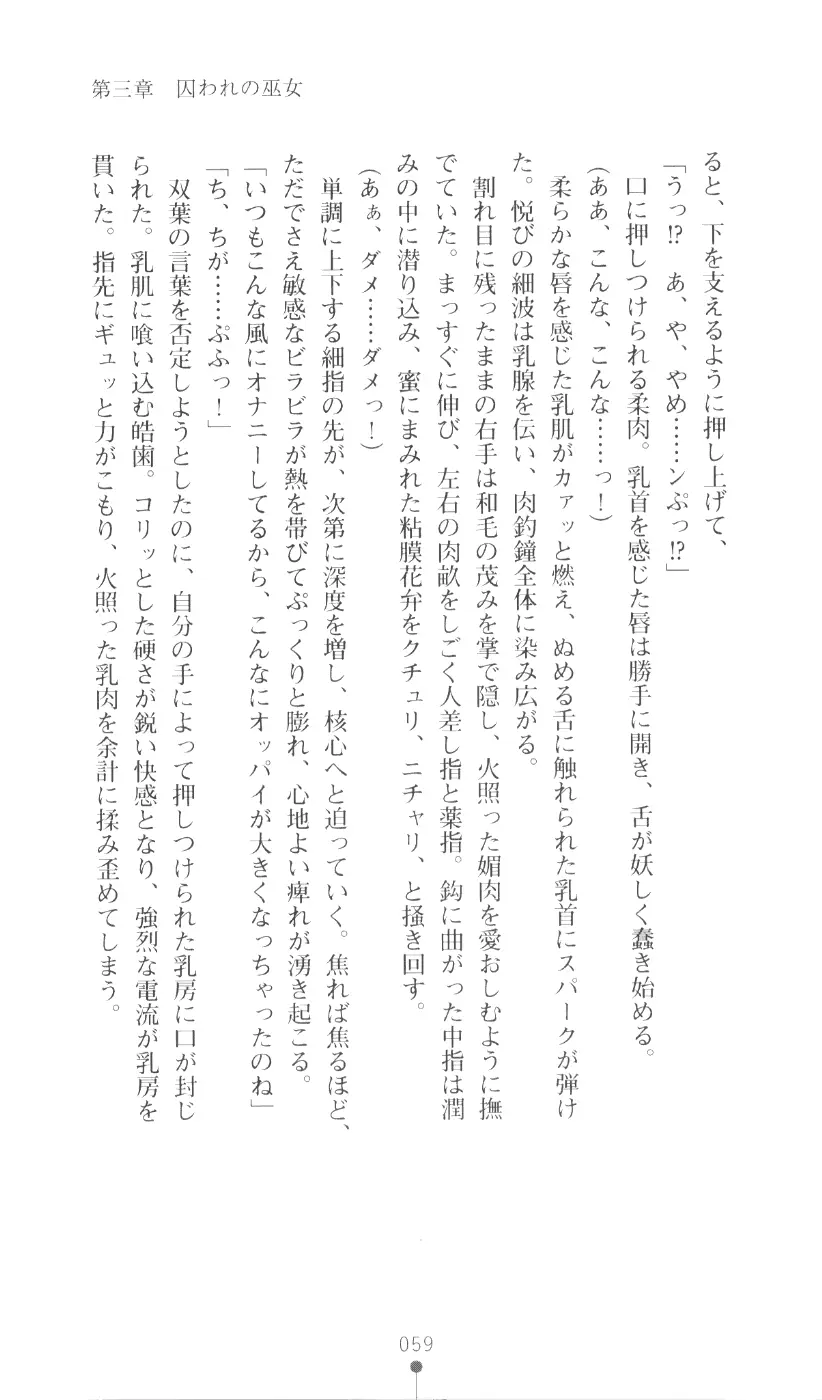 第三章　囚われの巫女
ると、下を支えるように押し上げて、
「うっ!?　あ、や、やめ……ンぷっ!?」
口に押しつけられる柔肉。乳首を感じた唇は勝手に開き、舌が妖しく蠢き始める。
(ああ、こんな、こんな……っ！)
柔らかな唇を感じた乳肌がカァッと燃え、ぬめる舌に触れられた乳首にスパークが弾け
た。悦びの細波は乳腺を伝い、肉釣鐘全体に染み広がる。
割れ目に残ったままの右手は和毛の茂みを掌で隠し、火照った媚肉を愛おしむように撫
でていた。まっすぐに伸び、左右の肉畝をしごく人差し指と薬指。鈎に曲がった中指は潤
みの中に潜り込み、蜜にまみれた粘膜花弁をクチュリ、ニチャリ、と掻き回す。
(あぁ、ダメ……ダメっ！)
単調に上下する細指の先が、次第に深度を増し、核心へと迫っていく。焦れば焦るほど、
ただでさえ敏感なビラビラが熱を帯びてぷっくりと膨れ、心地よい痺れが湧き起こる。
「いつもこんな風にオナニーしてるから、こんなにオッパイが大きくなっちゃったのね」
「ち、ちが……ぷふっ！」
双葉の言葉を否定しようとしたのに、自分の手によって押しつけられた乳房に口が封じ
られた。乳肌に喰い込む皓歯。コリッとした硬さが鋭い快感となり、強烈な電流が乳房を
貫いた。指先にギュッと力がこもり、火照った乳肉を余計に揉み歪めてしまう。
059